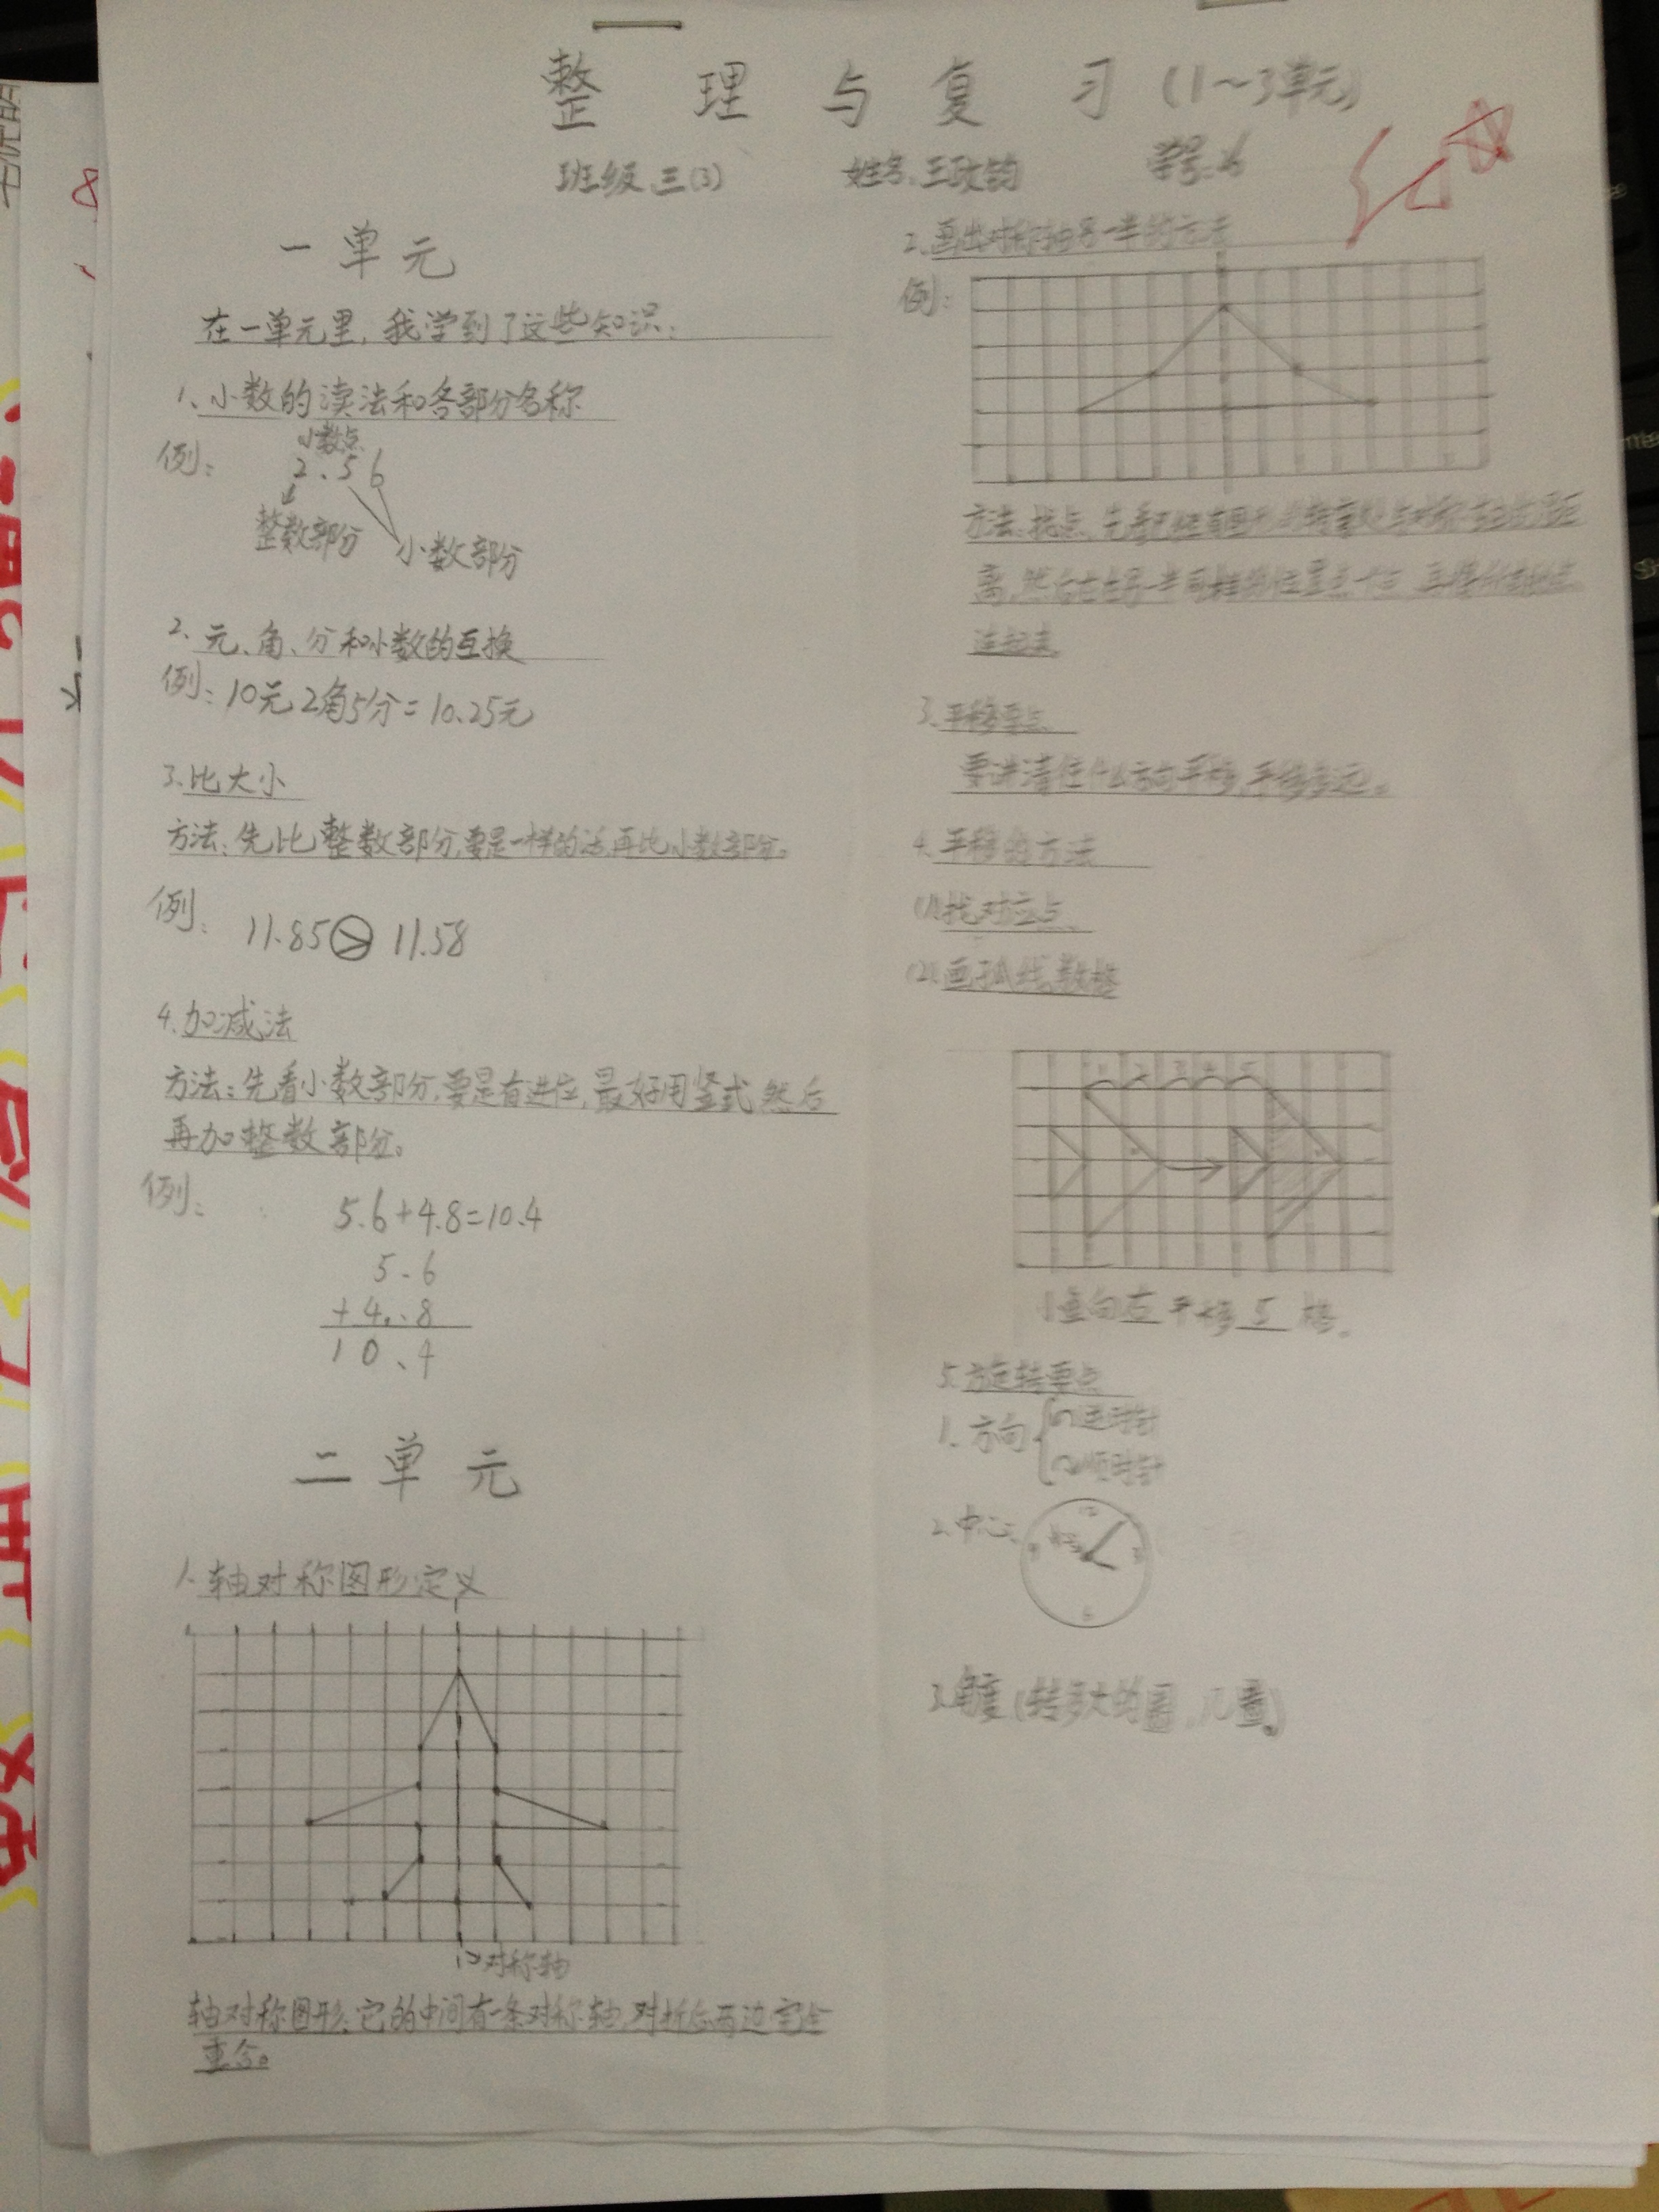 整理与复习(1~3单元)
班级:三(3) 姓名:王政钧 学号:
一单元
在一单元里,我学到了这些知识:
1、小数的读法和各部分名称
小数点
例: 2.56
整数部分 小数部分
2、元、角、分和小数的互换
例:10元2角5分=10.25元
3.比大小
方法:先比整数部分,要是一样的话,再比小数部分。
例: 11.85>11.58
4.加减法
方法:先看小数部分,要是有进位,最好用竖式,然后
再加整数部分。
例: 5.6+4.8=10.4
5.6
+4.8
10.4
二单元
1.轴对称图形定义
对称轴
轴对称图形:它的中间有一条对称轴,对折后两边完全
重合。
2.画出对称轴另一半的方法
例:
方法:找点,先看已经有图形的转弯处与对称轴的距
离,然后在另一半同样的位置点一个点,
连起来
3.平移要点
要讲清往什么方向平移,平移多远。
4.平移的方法
(1)找对应点
(2)画弧线,数格
1 2 3 4 5
向右平移5格。
5.旋转要点
1.方向 逆时针
顺时针
2.中心
3.角度(转多大的圈,几圈)